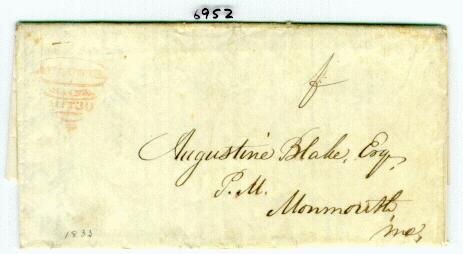 6952
f
Augustine Blake, Esq,
P. M.
Monmouth,
Me,
1833